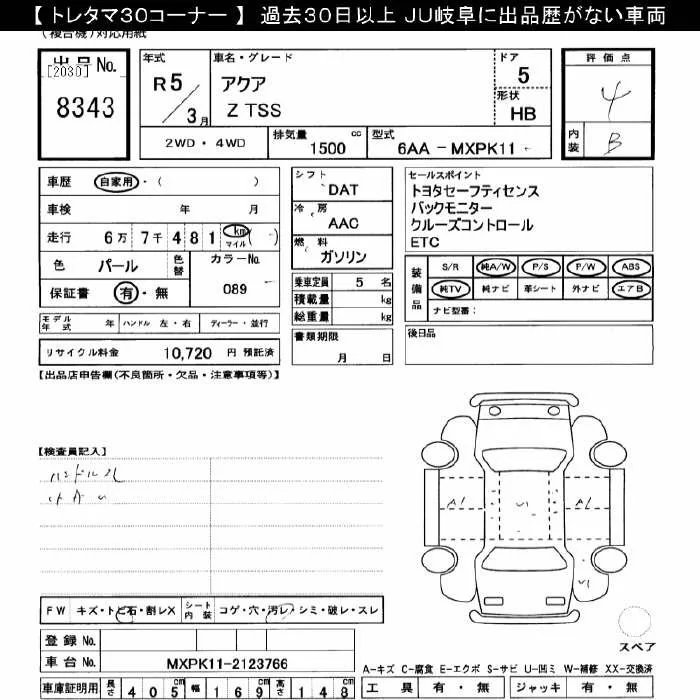 【 トレタマ30コーナー 】 過去30日以上 JU岐阜に出品歴がない車両
(複合機)対応用紙
出品No.
[2030]
8343
年式
R5/3月
車名・グレード
アクア
Z TSS
ドア
5
形状
HB
評価点
4
内装
B
2WD・4WD
排気量 1500 cc
型式 6AA－MXPK11－
車歴 自家用・( )
車検 年 月
走行 6万7千481 km マイル ( )
色 パール 色替
カラーNo. 089
保証書 有・無
モデル年式 年 ハンドル 左・右 ディーラー・並行
リサイクル料金 10,720 円 預託済
シフト DAT
冷房 AAC
燃料 ガソリン
乗車定員 5 名
積載量 kg
総重量 kg
書類期限
月 日
セールスポイント
トヨタセーフティセンス
バックモニター
クルーズコントロール
ETC
装備品
S/R 純A/W P/S P/W ABS
純TV 純ナビ 革シート 外ナビ エアB
ナビ型番：
後日品
【出品店申告欄(不良箇所・欠品・注意事項等)】
【検査員記入】
ハンドルスレ
A1 A1
FW キズ・トビ石・割レX シート内装 コゲ・穴・汚レ・シミ・破レ・スレ
登録No.
車台No. MXPK11-2123766
車庫証明用 長さ 405cm 幅 169cm 高さ 148cm
スペア
A-キズ C-腐食 E-エクボ S-サビ U-凹ミ W-補修 XX-交換済
工具 有・無 ジャッキ 有・無